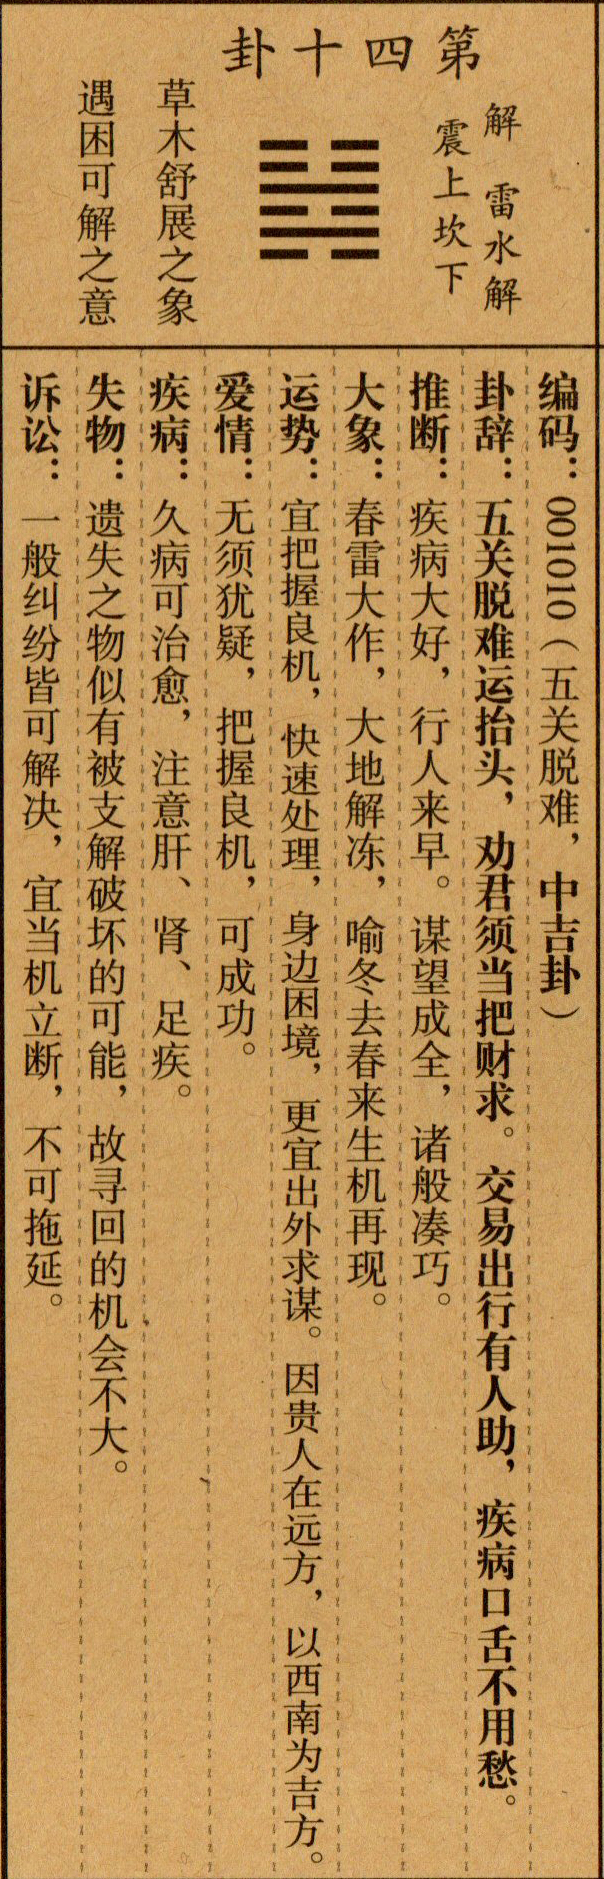 第四十卦
解 雷水解
震上坎下
草木舒展之象
遇困可解之意
编码：001010（五关脱难，中吉卦）
卦辞：五关脱难运抬头，劝君须当把财求。交易出行有人助，疾病口舌不用愁。
推断：疾病大好，行人来早。谋望成全，诸般凑巧。
大象：春雷大作，大地解冻，喻冬去春来生机再现。
运势：宜把握良机，快速处理，身边困境，更宜出外求谋。因贵人在远方，以西南为吉方。
爱情：无须犹疑，把握良机，可成功。
疾病：久病可治愈，注意肝、肾、足疾。
失物：遗失之物似有被支解破坏的可能，故寻回的机会不大。
诉讼：一般纠纷皆可解决，宜当机立断，不可拖延。